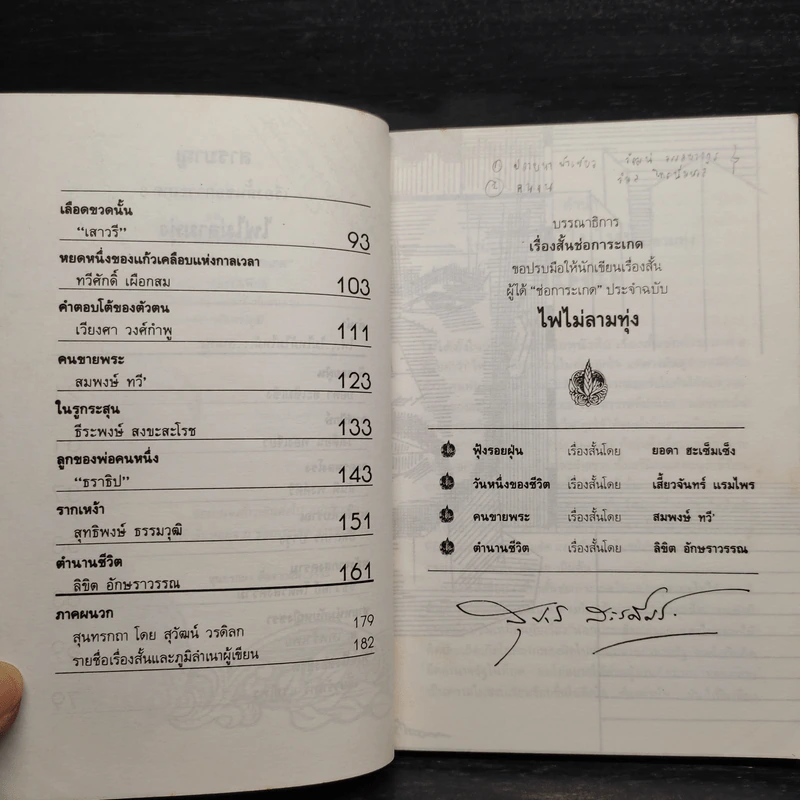 เลือดขวดนั้น
"เสาวรี" 93
หยดหนึ่งของแก้วเคลือบแห่งกาลเวลา
ทวีศักดิ์ เผือกสม 103
คำตอบโต้ของตัวตน
เวียงศา วงศ์กำพู 111
คนขายพระ
สมพงษ์ ทวี' 123
ในรูกระสุน
ธีระพงษ์ สงขะสะโรช 133
ลูกของพ่อคนหนึ่ง
"ธราธิป" 143
รากเหง้า
สุทธิพงษ์ ธรรมวุฒิ 151
ตำนานชีวิต
ลิขิต อักษราวรรณ 161
ภาคผนวก
สุนทรกถา โดย สุวัฒน์ วรดิลก 179
รายชื่อเรื่องสั้นและภูมิลำเนาผู้เขียน 182
บรรณาธิการ
เรื่องสั้นช่อการะเกด
ขอปรบมือให้นักเขียนเรื่องสั้น
ผู้ได้ "ช่อการะเกด" ประจำฉบับ
ไฟไม่ลามทุ่ง
ฟุ้งรอยฝุ่น เรื่องสั้นโดย ยอดา ฮะเซ็มเซ็ง
วันหนึ่งของชีวิต เรื่องสั้นโดย เสี้ยวจันทร์ แรมไพร
คนขายพระ เรื่องสั้นโดย สมพงษ์ ทวี'
ตำนานชีวิต เรื่องสั้นโดย ลิขิต อักษราวรรณ